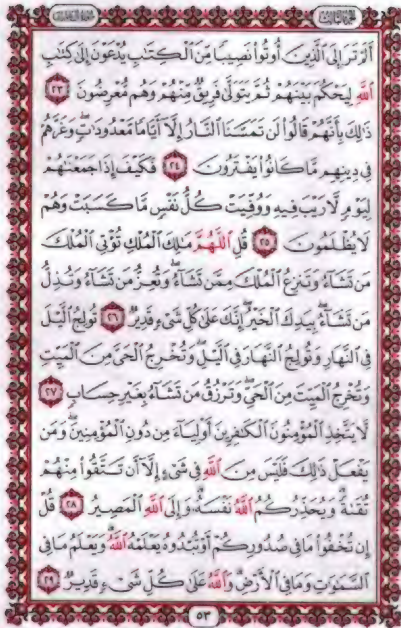 الجزء الثالث
سورة آل عمران
أَلَمْ تَرَ إِلَى ٱلَّذِينَ أُوتُوا۟ نَصِيبًا مِّنَ ٱلْكِتَـٰبِ يُدْعَوْنَ إِلَىٰ كِتَـٰبِ
ٱللَّهِ لِيَحْكُمَ بَيْنَهُمْ ثُمَّ يَتَوَلَّىٰ فَرِيقٌ مِّنْهُمْ وَهُم مُّعْرِضُونَ ٢٣
ذَٰلِكَ بِأَنَّهُمْ قَالُوا۟ لَن تَمَسَّنَا ٱلنَّارُ إِلَّآ أَيَّامًا مَّعْدُودَٰتٍ ۖ وَغَرَّهُمْ
فِى دِينِهِم مَّا كَانُوا۟ يَفْتَرُونَ ٢٤ فَكَيْفَ إِذَا جَمَعْنَـٰهُمْ
لِيَوْمٍ لَّا رَيْبَ فِيهِ وَوُفِّيَتْ كُلُّ نَفْسٍ مَّا كَسَبَتْ وَهُمْ
لَا يُظْلَمُونَ ٢٥ قُلِ ٱللَّهُمَّ مَـٰلِكَ ٱلْمُلْكِ تُؤْتِى ٱلْمُلْكَ
مَن تَشَآءُ وَتَنزِعُ ٱلْمُلْكَ مِمَّن تَشَآءُ وَتُعِزُّ مَن تَشَآءُ وَتُذِلُّ
مَن تَشَآءُ ۖ بِيَدِكَ ٱلْخَيْرُ ۖ إِنَّكَ عَلَىٰ كُلِّ شَىْءٍ قَدِيرٌ ٢٦ تُولِجُ ٱلَّيْلَ
فِى ٱلنَّهَارِ وَتُولِجُ ٱلنَّهَارَ فِى ٱلَّيْلِ ۖ وَتُخْرِجُ ٱلْحَىَّ مِنَ ٱلْمَيِّتِ
وَتُخْرِجُ ٱلْمَيِّتَ مِنَ ٱلْحَىِّ ۖ وَتَرْزُقُ مَن تَشَآءُ بِغَيْرِ حِسَابٍ ٢٧
لَّا يَتَّخِذِ ٱلْمُؤْمِنُونَ ٱلْكَـٰفِرِينَ أَوْلِيَآءَ مِن دُونِ ٱلْمُؤْمِنِينَ ۖ وَمَن
يَفْعَلْ ذَٰلِكَ فَلَيْسَ مِنَ ٱللَّهِ فِى شَىْءٍ إِلَّآ أَن تَتَّقُوا۟ مِنْهُمْ
تُقَىٰةً ۗ وَيُحَذِّرُكُمُ ٱللَّهُ نَفْسَهُۥ ۗ وَإِلَى ٱللَّهِ ٱلْمَصِيرُ ٢٨ قُلْ
إِن تُخْفُوا۟ مَا فِى صُدُورِكُمْ أَوْ تُبْدُوهُ يَعْلَمْهُ ٱللَّهُ ۗ وَيَعْلَمُ مَا فِى
ٱلسَّمَـٰوَٰتِ وَمَا فِى ٱلْأَرْضِ ۗ وَٱللَّهُ عَلَىٰ كُلِّ شَىْءٍ قَدِيرٌ ٢٩
٥٣